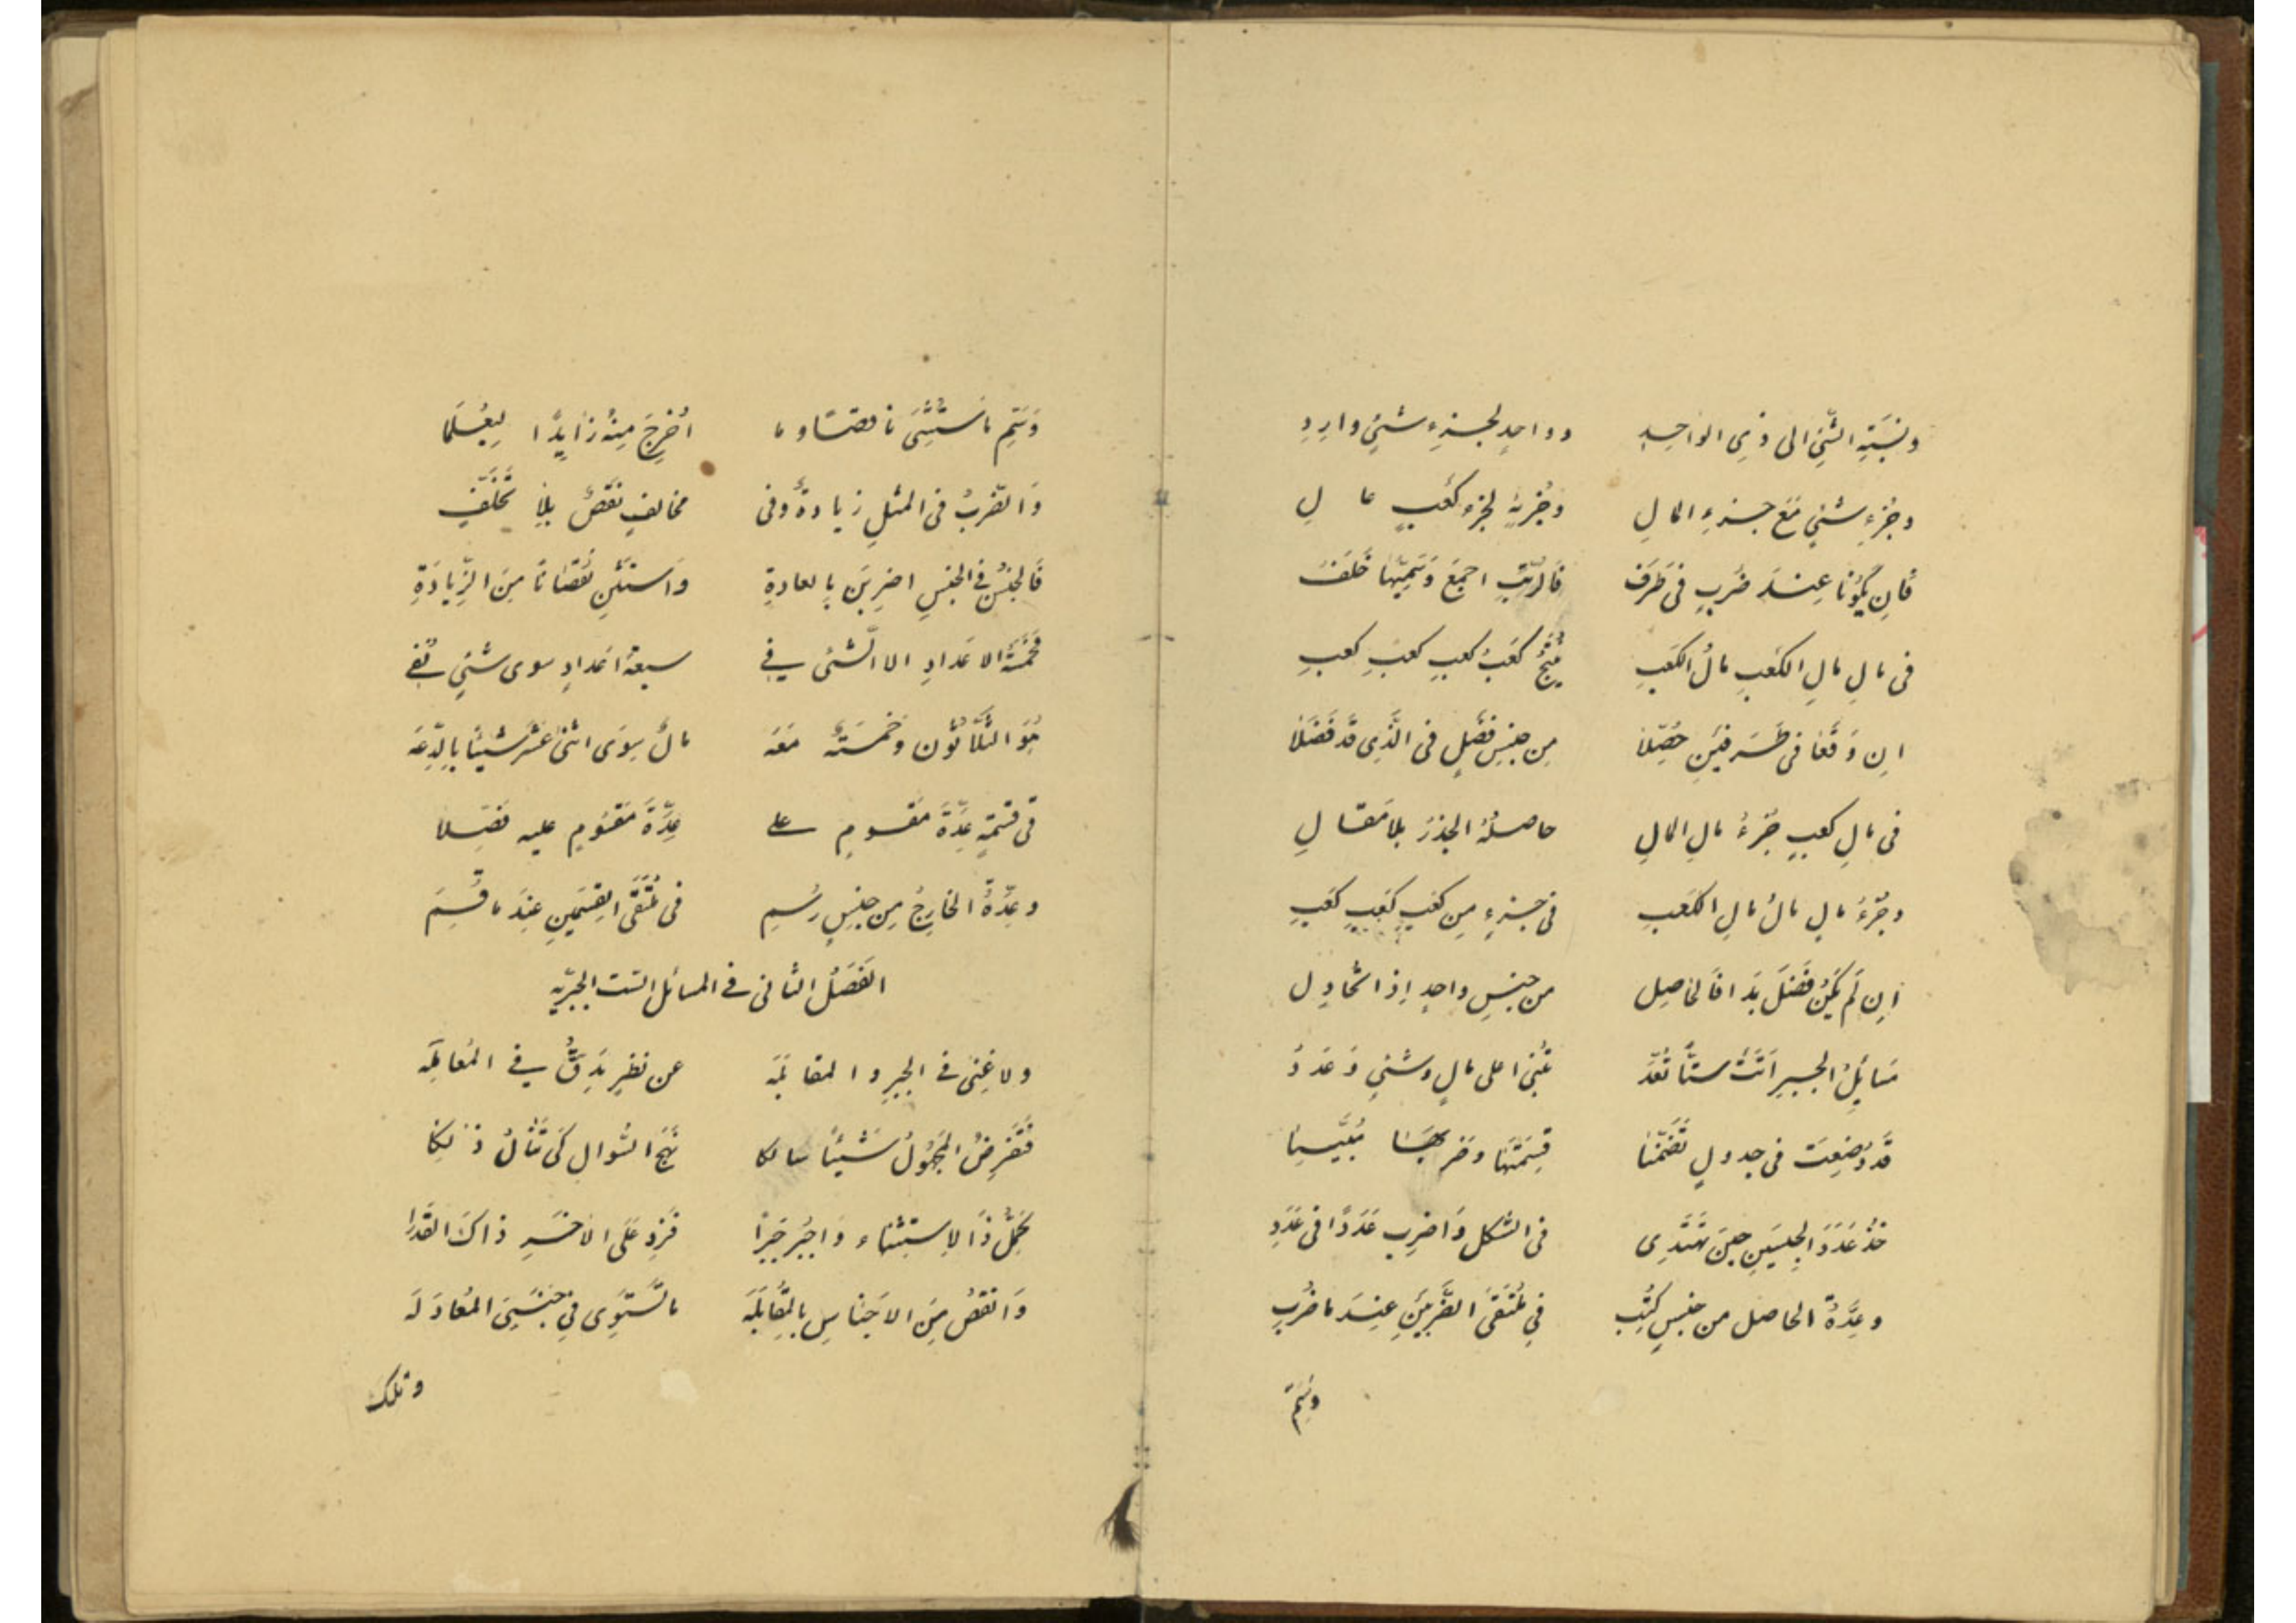 ونسبة الشئ الى ذي الواحد دواحد لجزء شئ وارد
وجزء شئ مع جزء المال وجزئه لجزء كعب عال
فان يكونا عند ضرب في طرف فالرتب اجمع وسميها خلف
في مال مال الكعب مال الكعب ينتج كعب كعب كعب كعب
ان وقعا في طرفين حصلا من جنس فضل في الذي قد فضلا
في مال كعب جزء مال المال حاصله الجذر بلا مقال
وجزء مال مال مال الكعب في جزء من كعب كعب كعب
ان لم يكن فضل بدا فالحاصل من جنس واحد اذا تحاول
مسائل الجبر اتت ستا تعد تبنى على مال وشئ وعدد
قد وضعت في جدول تضمنا قسمتها وضربها مبينا
خذ عدد الجنسين حين تهتدي في الشكل واضرب عددا في عدد
وعدة الحاصل من جنس كتب في ملتقى الضربين عند ما ضرب
وسم
وسم ما استثني ناقصا وما اخرج منه زايدا ليعلما
والضرب في المثل زيادة وفي مخالف نقص بلا تخلف
فالجنس في الجنس اضربن بالعادة واستثن نقصانا من الزيادة
فخمسة الاعداد الا الشئ في سبعة اعداد سوى شئ تفي
هو الثلاثون وخمسة معه مال سوى اثنى عشر شيئا بالدعه
في قسمة عدة مقسوم على عدة مقسوم عليه فضلا
وعدة الخارج من جنس رسم في ملتقى القسمين عند ما قسم
الفصل الثاني في المسائل الست الجبريه
ولا غنى في الجبر والمقابله عن نظر يدق في المعامله
فتفرض المجهول شيئا سالكا نهج السوال كي تنال ذلكا
كمل ذا الاستثناء واجبر جبرا فزد على الاخر ذاك القدرا
وانقص من الاجناس بالمقابله ما تستوي في جنسي المعادله
وتلك